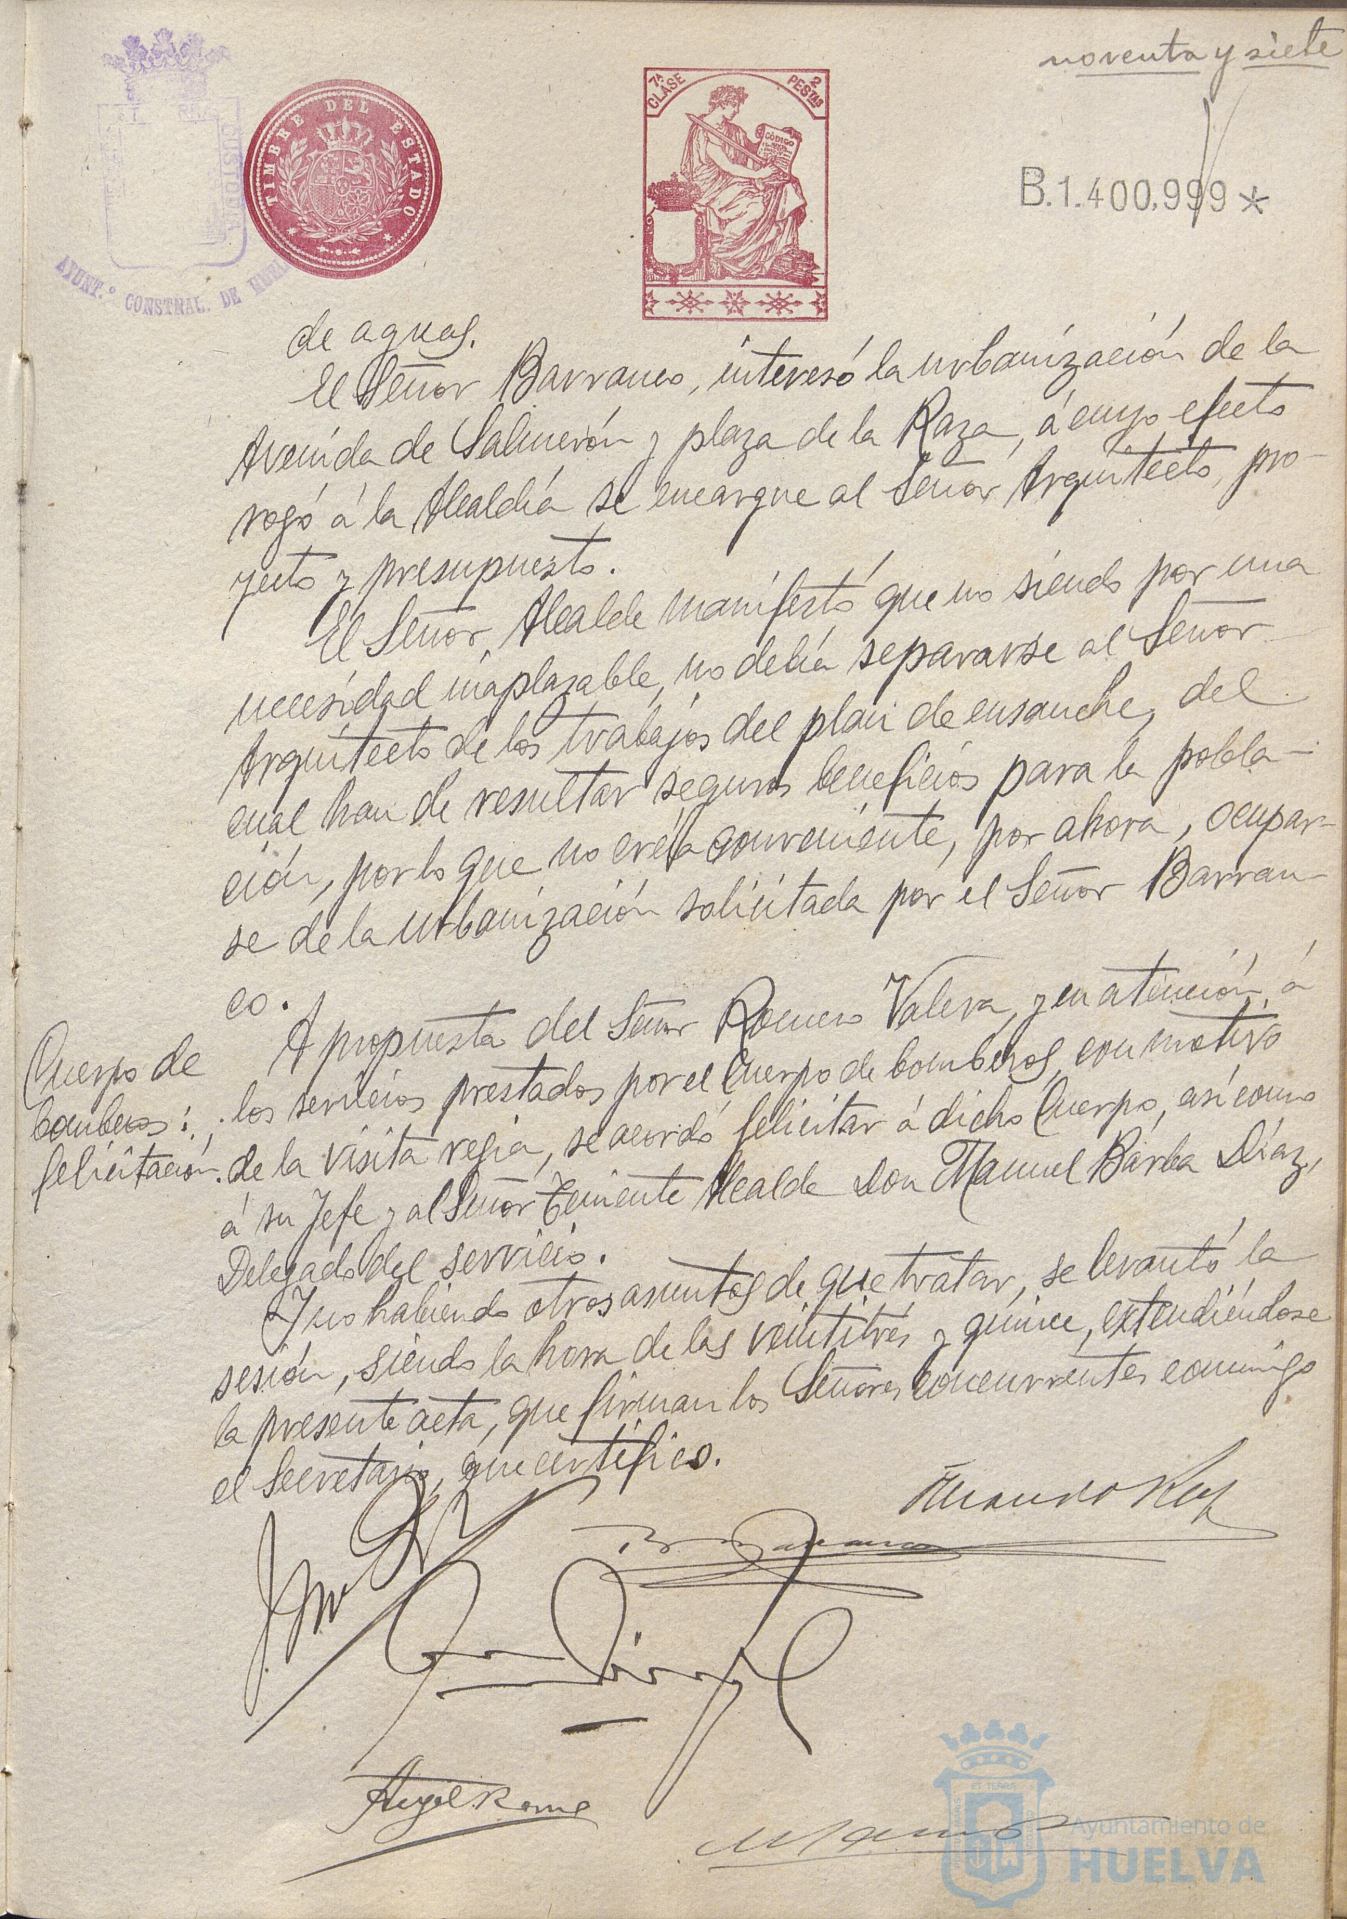 noventa y siete
TIMBRE DEL ESTADO
7ª CLASE
2 PESTAS
CÓDIGO
B.1.400.999 *
AYUNT.º CONSTNAL. DE HUEL
de aguas.
El Señor Barranco, interesó la urbanización de la
Avenida de Salmerón y plaza de la Raza, á cuyo efecto
rogó á la Alcaldía se encargue al Señor Arquitecto, pro-
yecto y presupuesto.
El Señor Alcalde manifestó que no siendo por una
necesidad inaplazable, no debía separarse al Señor
Arquitecto de los trabajos del plan de ensanche, del
cual han de resultar seguros beneficios para la pobla-
ción, por lo que no creía conveniente, por ahora, ocupar-
se de la urbanización solicitada por el Señor Barran-
co.
A propuesta del Señor Romero Valera, y en atención á
Cuerpo de
bomberos:
felicitación.
los servicios prestados por el Cuerpo de bomberos, con motivo
de la visita regia, se acordó felicitar á dicho Cuerpo, así como
á su Jefe y al Señor Teniente Alcalde Don Manuel Barba Díaz,
Delegado del servicio.
Y no habiendo otros asuntos de que tratar, se levantó la
sesión, siendo la hora de las veintitrés y quince, extendiéndose
la presente acta, que firman los Señores concurrentes conmigo
el Secretario, que certifico.
Barranco
Angel Rome
Ayuntamiento de
HUELVA